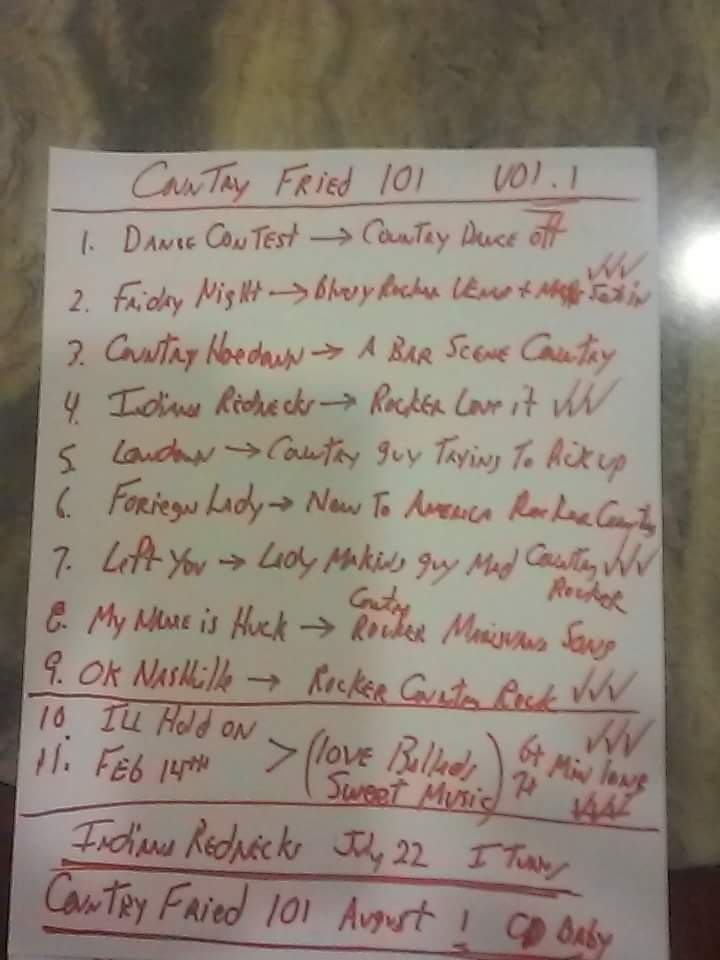 COUNTRY FRIED 101 VOl.1
1. DANCE CONTEST → COUNTRY DANCE Off
2. FRIDAY Night → Bluesy ROCKER +
3. COUNTRY HOEDOWN → A BAR SCENE COUNTRY
4. INDIANA REDNECKS → ROCKER LOVE it ✓✓✓
5. LOWDOWN → COUNTRY guy TRYING TO PICK UP
6. FORIEGN LADY → NEW TO AMERICA ROCKER COUNTRY
7. Left You → LADY MAKING guy MAD COUNTRY ROCKER ✓✓✓
8. MY NAME iS HUCK → COUNTRY ROCKER MARIJUANA SONG
9. OK NASHVille → ROCKER COUNTRY ROCK ✓✓✓
10 I'LL HOLD ON ✓✓✓
11. FEB 14TH > (LOVE BALLADS SWEET MUSIC) 6+ 7+ MIN LONG ✓✓✓
INDIANA REDNECKS July 22 I TUNES
COUNTRY FRIED 101 AUGUST 1 CD BABY